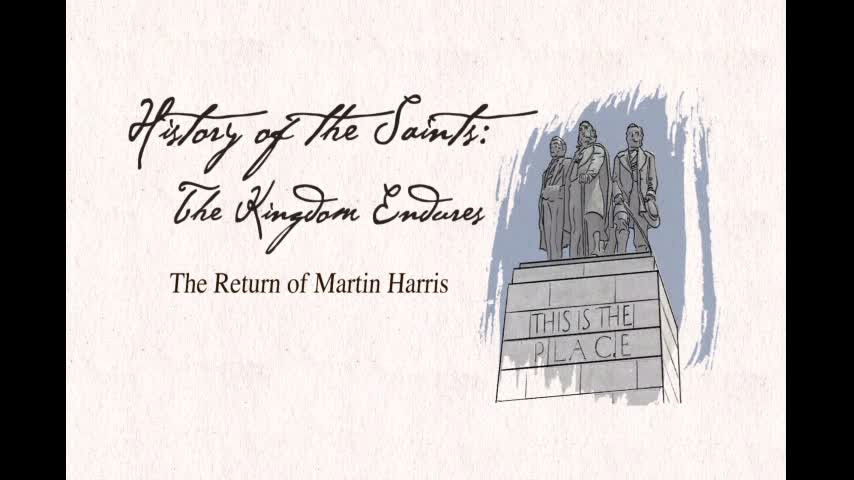 History of the Saints:
The Kingdom Endures
The Return of Martin Harris
THIS IS THE
PLACE